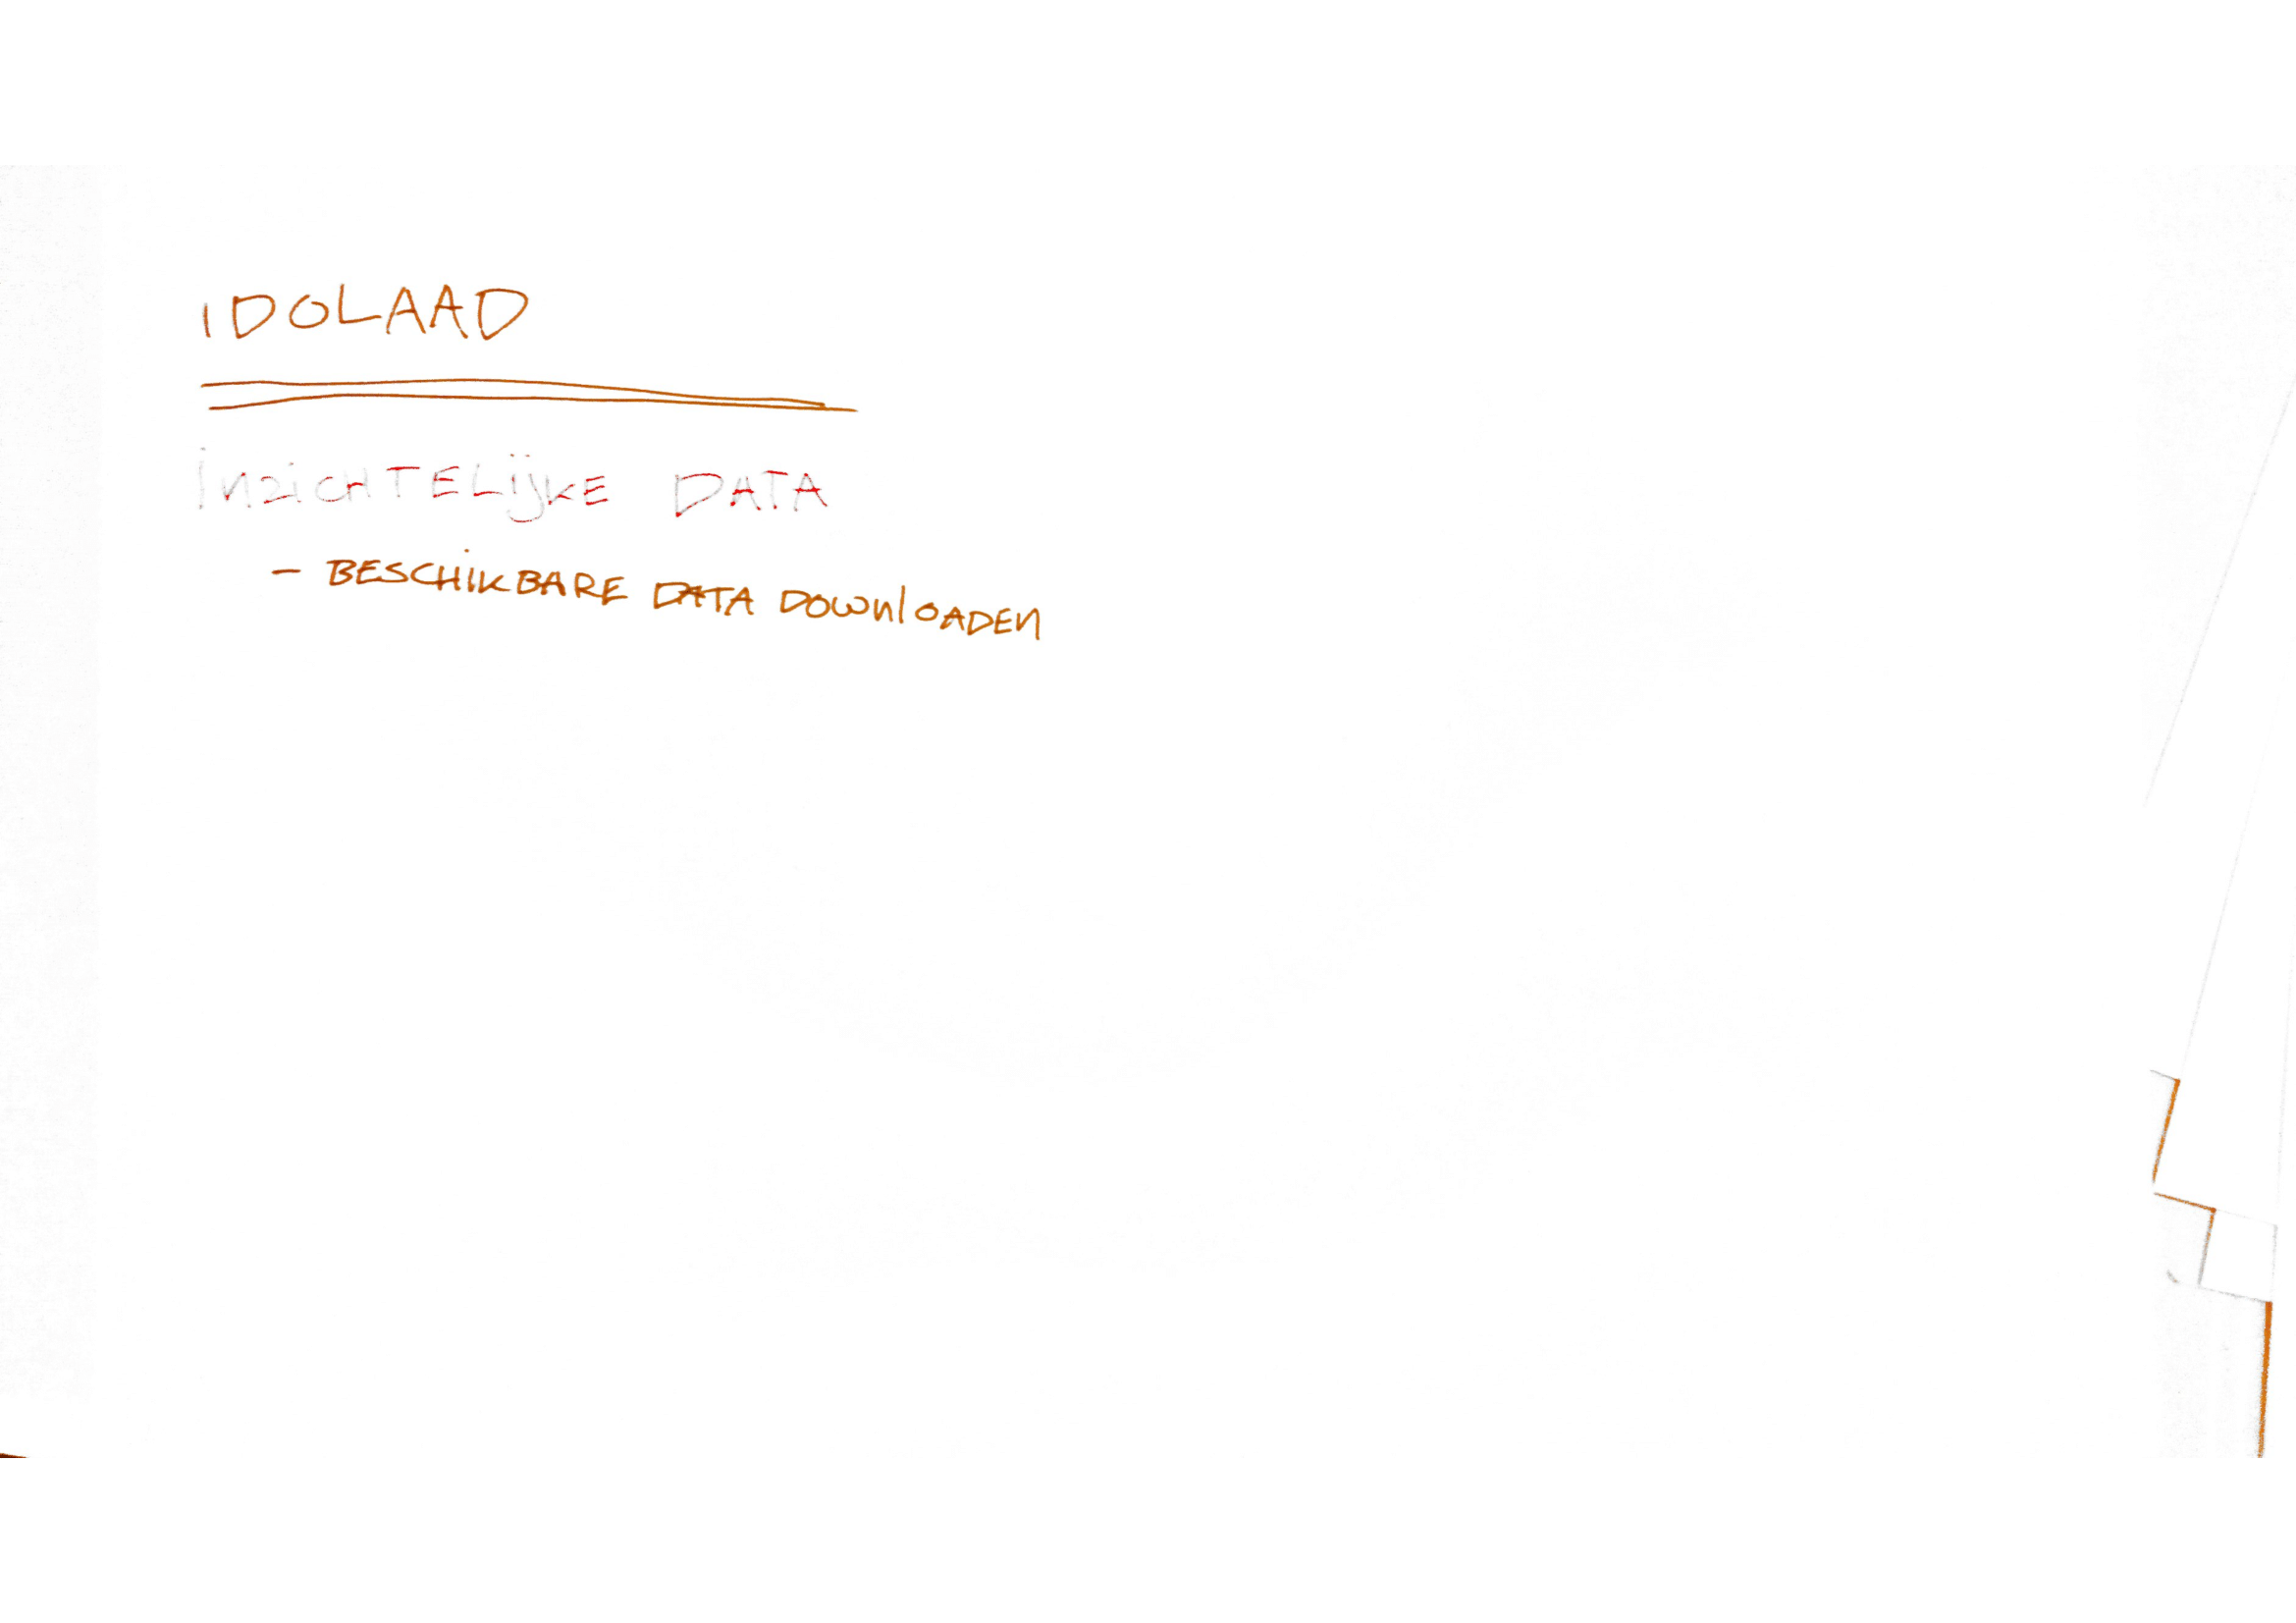 IDOLAAD
INZICHTELIJKE DATA
- BESCHIKBARE DATA DOWNLOADEN